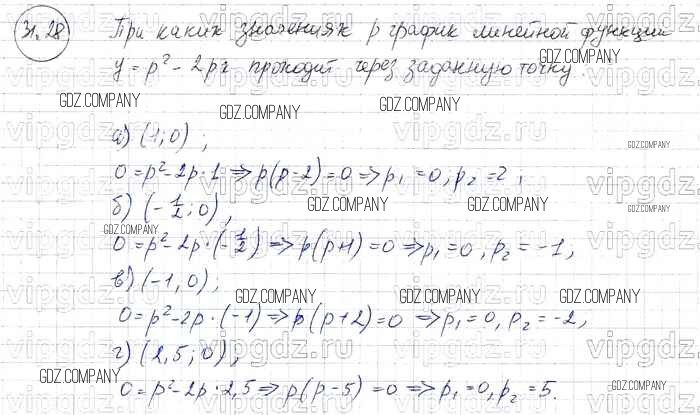 31.28 При каких значениях p график линейной функции
y = p² - 2px проходит через заданную точку.
GDZ.COMPANY
GDZ.COMPANY GDZ.COMPANY
а) (1; 0);
GDZ.COMPANY
0 = p² - 2p · 1 ⇒ p(p - 2) = 0 ⇒ p₁ = 0, p₂ = 2;
б) (-1/2; 0);
GDZ.COMPANY GDZ.COMPANY GDZ.COMPANY
GDZ.COMPANY
0 = p² - 2p · (-1/2) ⇒ p(p + 1) = 0 ⇒ p₁ = 0, p₂ = -1,
в) (-1, 0);
GDZ.COMPANY GDZ.COMPANY GDZ.COMPANY
0 = p² - 2p · (-1) ⇒ p(p + 2) = 0 ⇒ p₁ = 0, p₂ = -2,
г) (2,5; 0);
GDZ.COMPANY GDZ.COMPANY GDZ.COMPANY
0 = p² - 2p · 2,5 ⇒ p(p - 5) = 0 ⇒ p₁ = 0, p₂ = 5.
vipgdz.ru